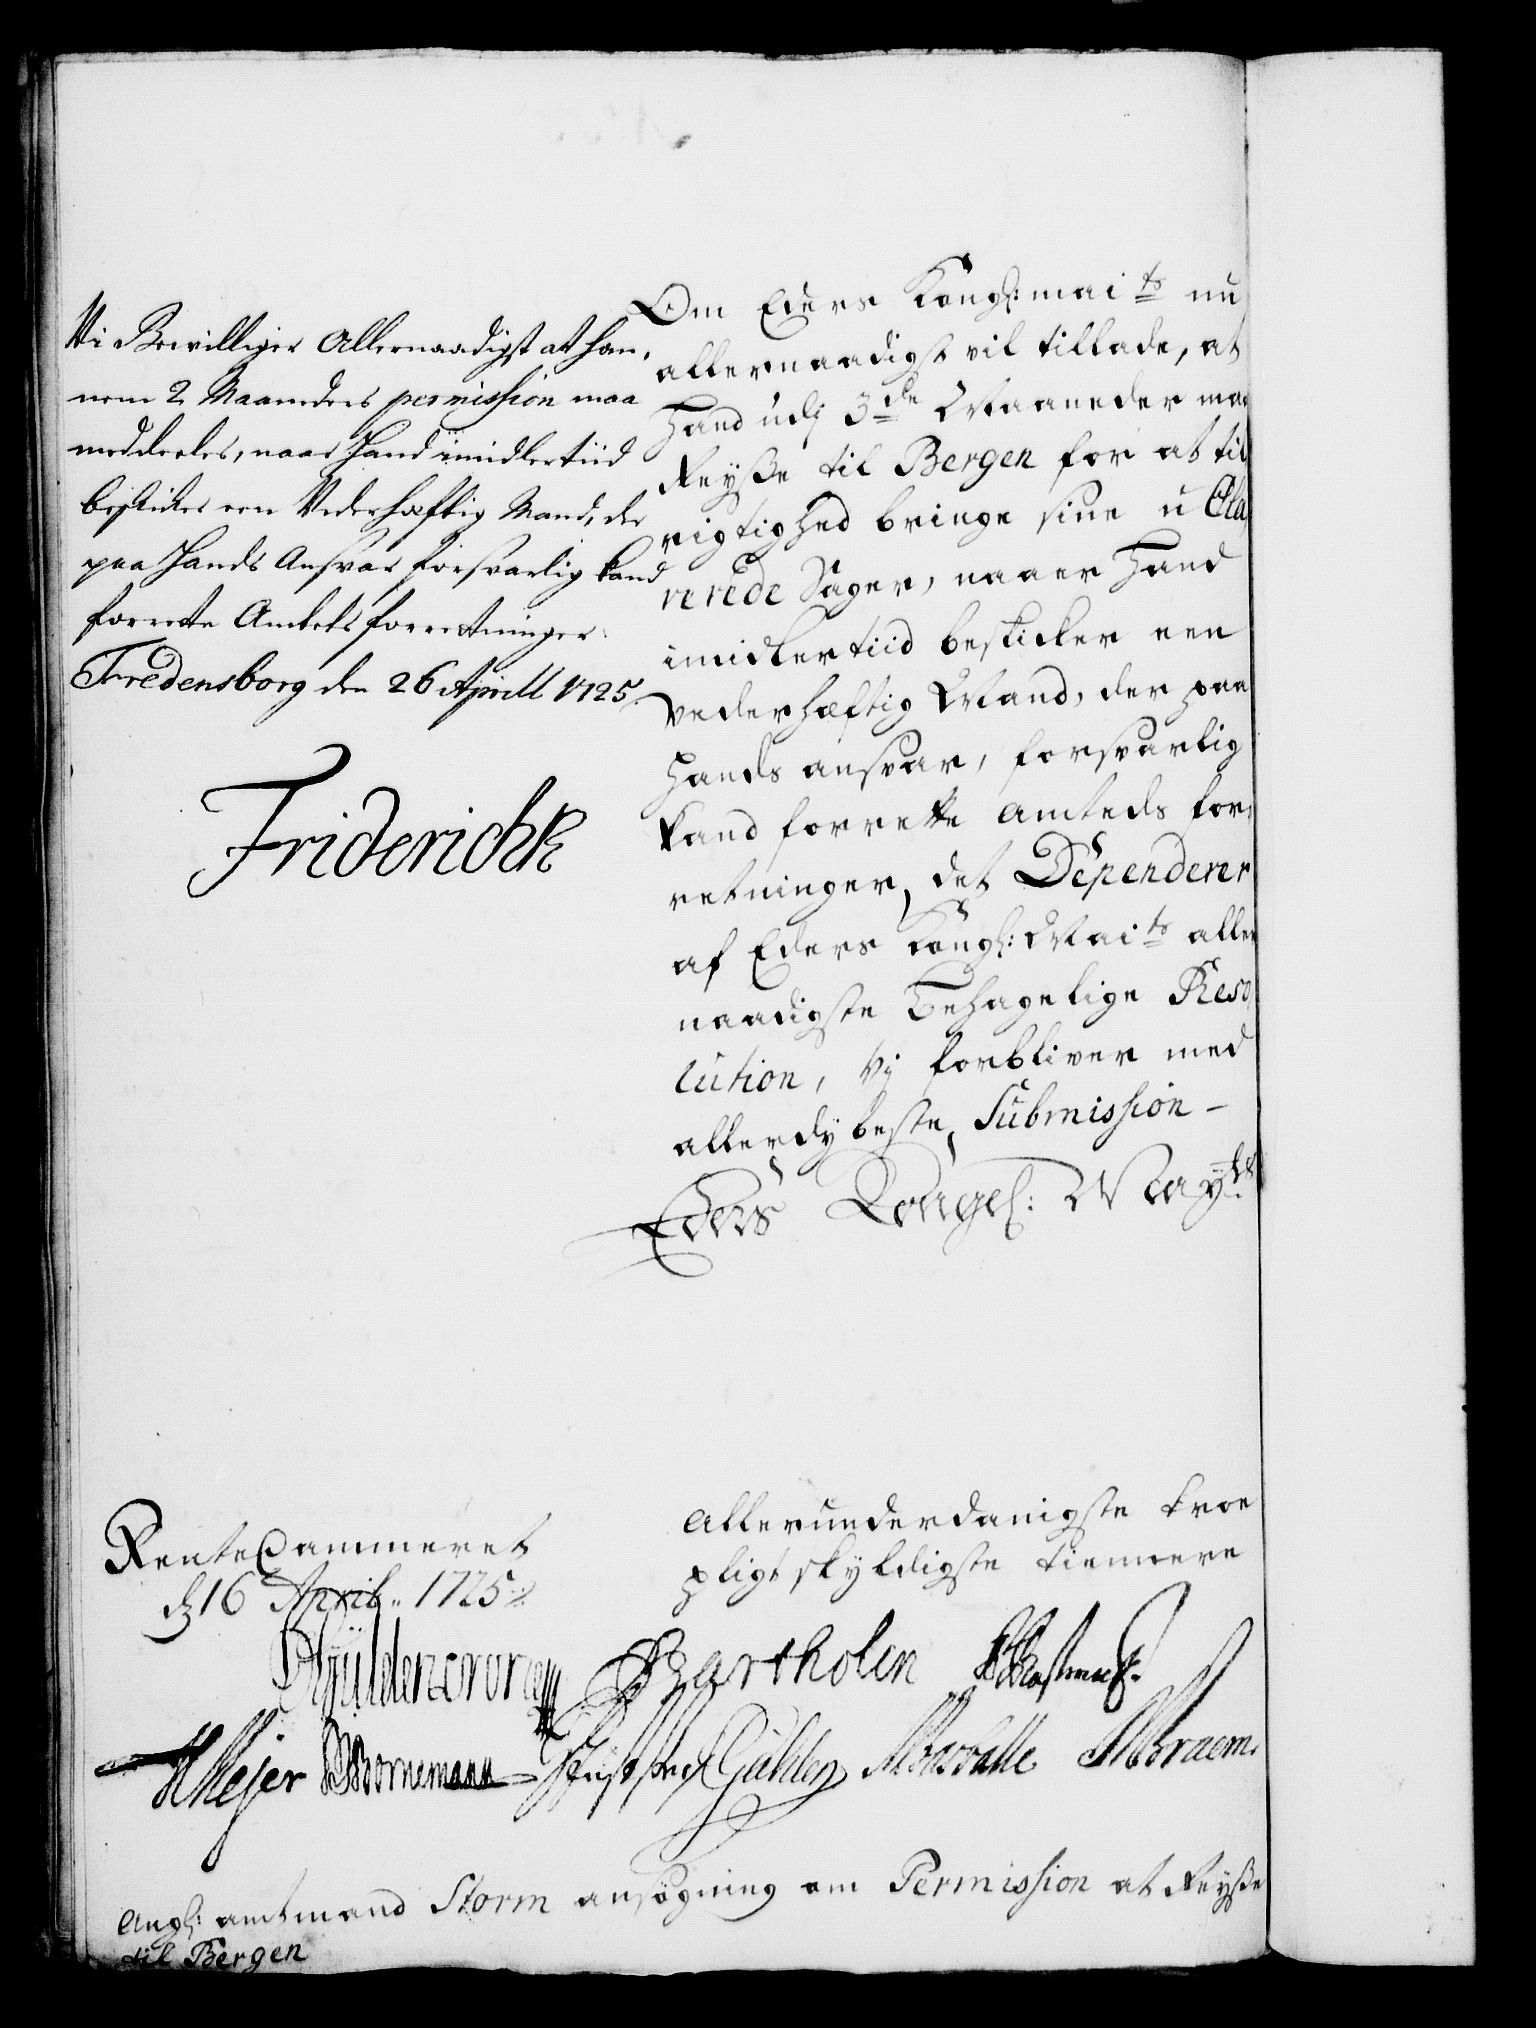 Vi Bevilliger Allernaadigst at han,
nem 2 Maaneders permission maa
meddeeles, naar Hand imidlertiid
beskicker een Vederhæftig Mand, der
paa Hands Ansvar forsvarlig kand
forrette Ambtets forretninger.
Fredensborg den 26 Aprill 1725.
Friderich R
Om Eders Kongl: mai ts nu
allernaadigst vil tillade, at
Hand udj 3de Maaneder maa
Reyße til Bergen for at til
rigtighed bringe sine u Cla,
rerede Sager, naaer Hand
imidlertiid beskicker een
vederhæftig Mand, der paa
Hands ansvar, forsvarlig
kand forrette Amteds for,
retninger, det Dependerer
af Eders Kongl: Mai ts aller
naadigste behagelige Reso,
lution, vj forbliver med
allerdybeste Submission –
Eders Kongel: May ts
RenteCammeret
d 16 April: 1725
Allerunderdanigste troe
pligtskyldigste tiennere
Güldencrone Bartholin
HMejer Bornemann Gülden Braem.
Angl: amtmand Storm ansøgning om Permission at Reyße
til Bergen